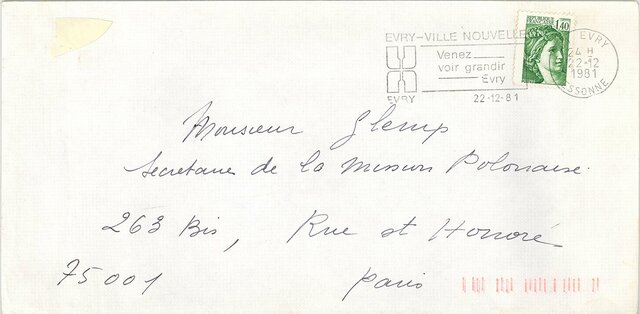 EVRY-VILLE NOUVELLE
Venez
voir grandir
Evry
EVRY
22-12-81
1,40
EVRY
24 H
22-12
1981
ESSONNE
Monsieur Glemp
Secretaire de la Mission Polonaise
263 Bis, Rue st Honoré
75001 Paris